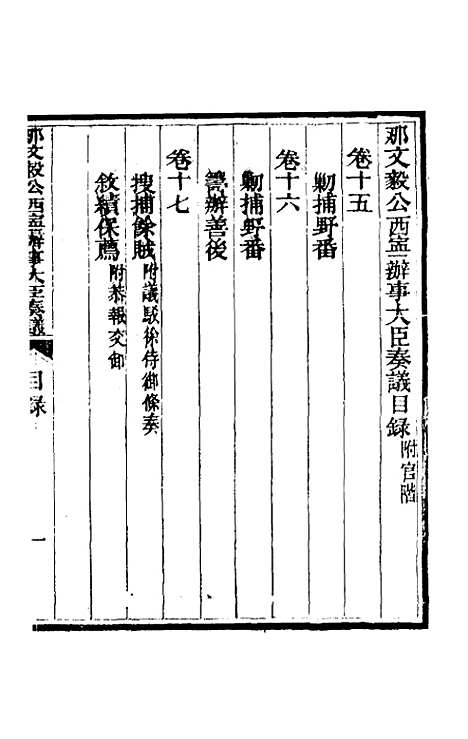 那文毅公西寧辦事大臣奏議目錄 附官階
卷十五
勦捕野番
卷十六
勦捕野番
籌辦善後
卷十七
搜捕餘賊 附議駁徐侍御條奏
敘績保薦 附恭報交卸
那文毅公西寧辦事大臣奏議 目錄 一